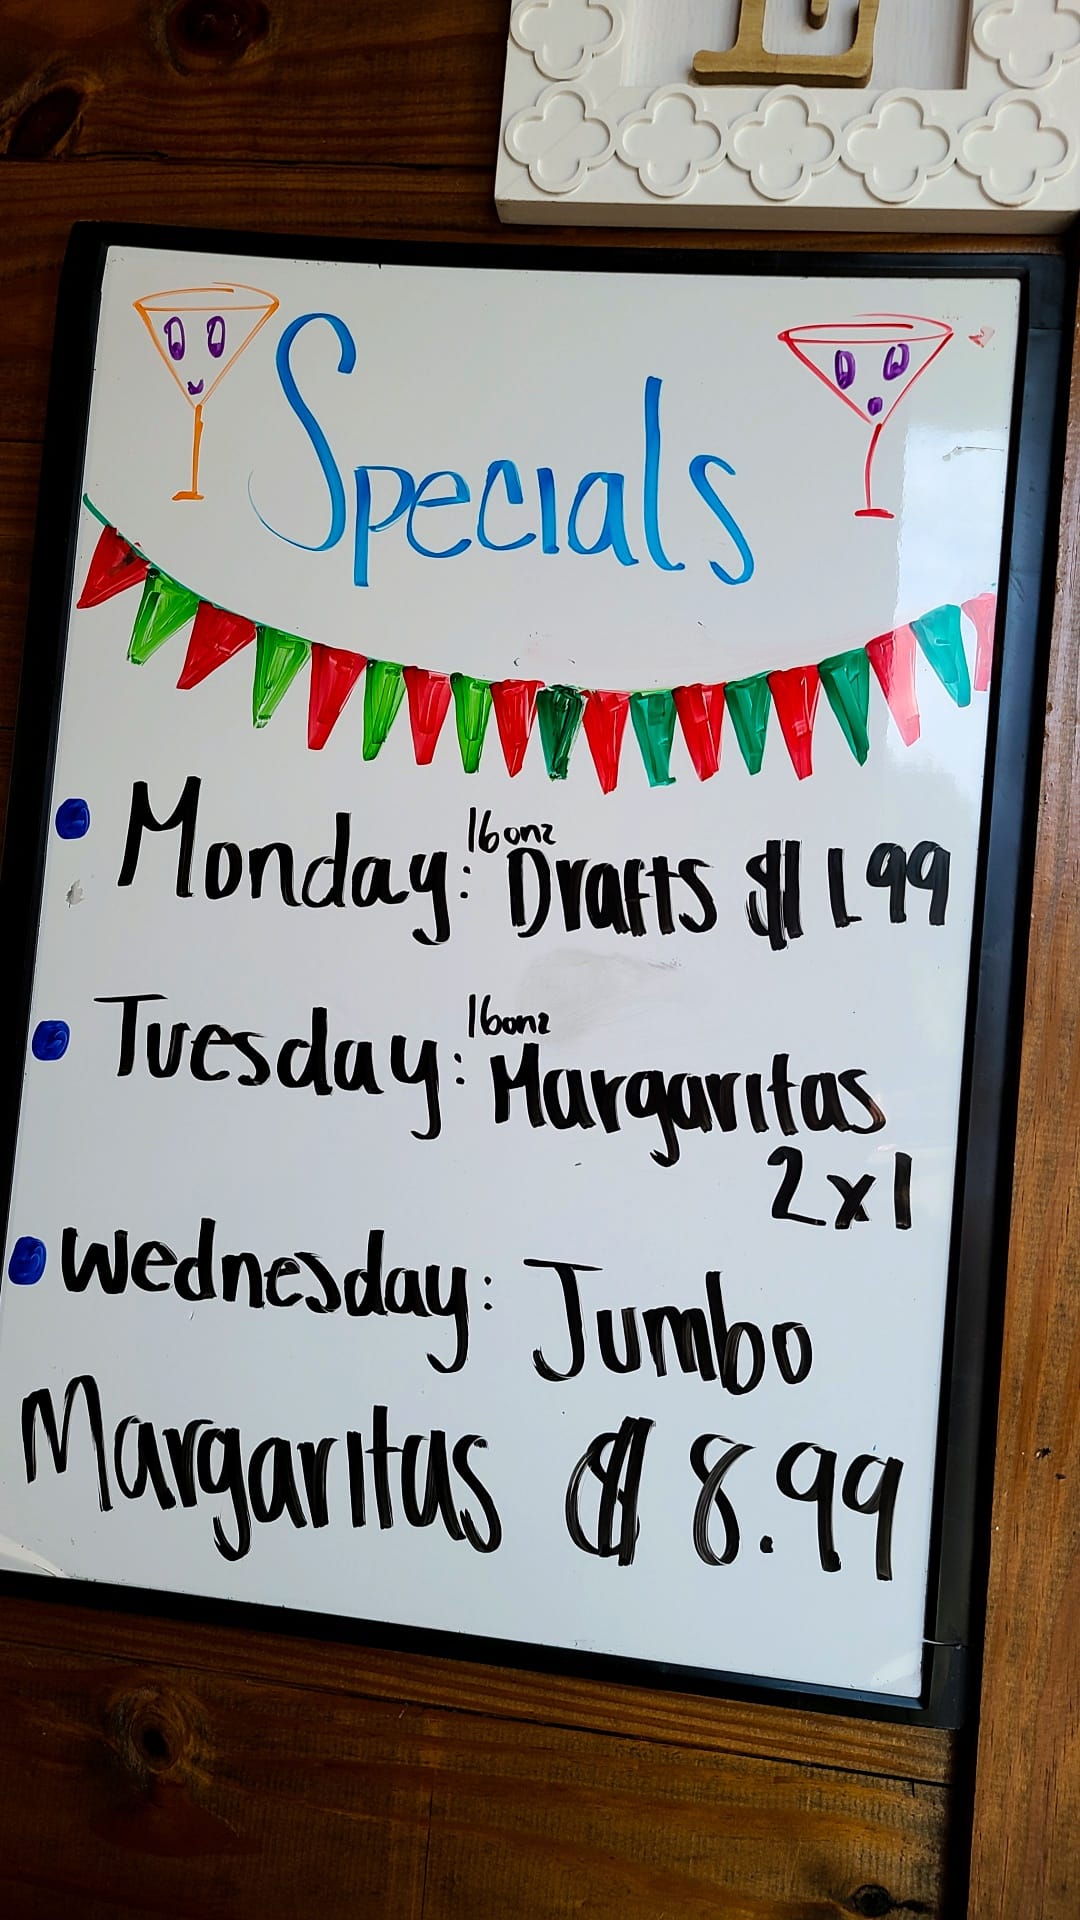 Specials
Monday: 16onz Drafts $1.99
Tuesday: 16onz Margaritas
2x1
Wednesday: Jumbo
Margaritas $8.99